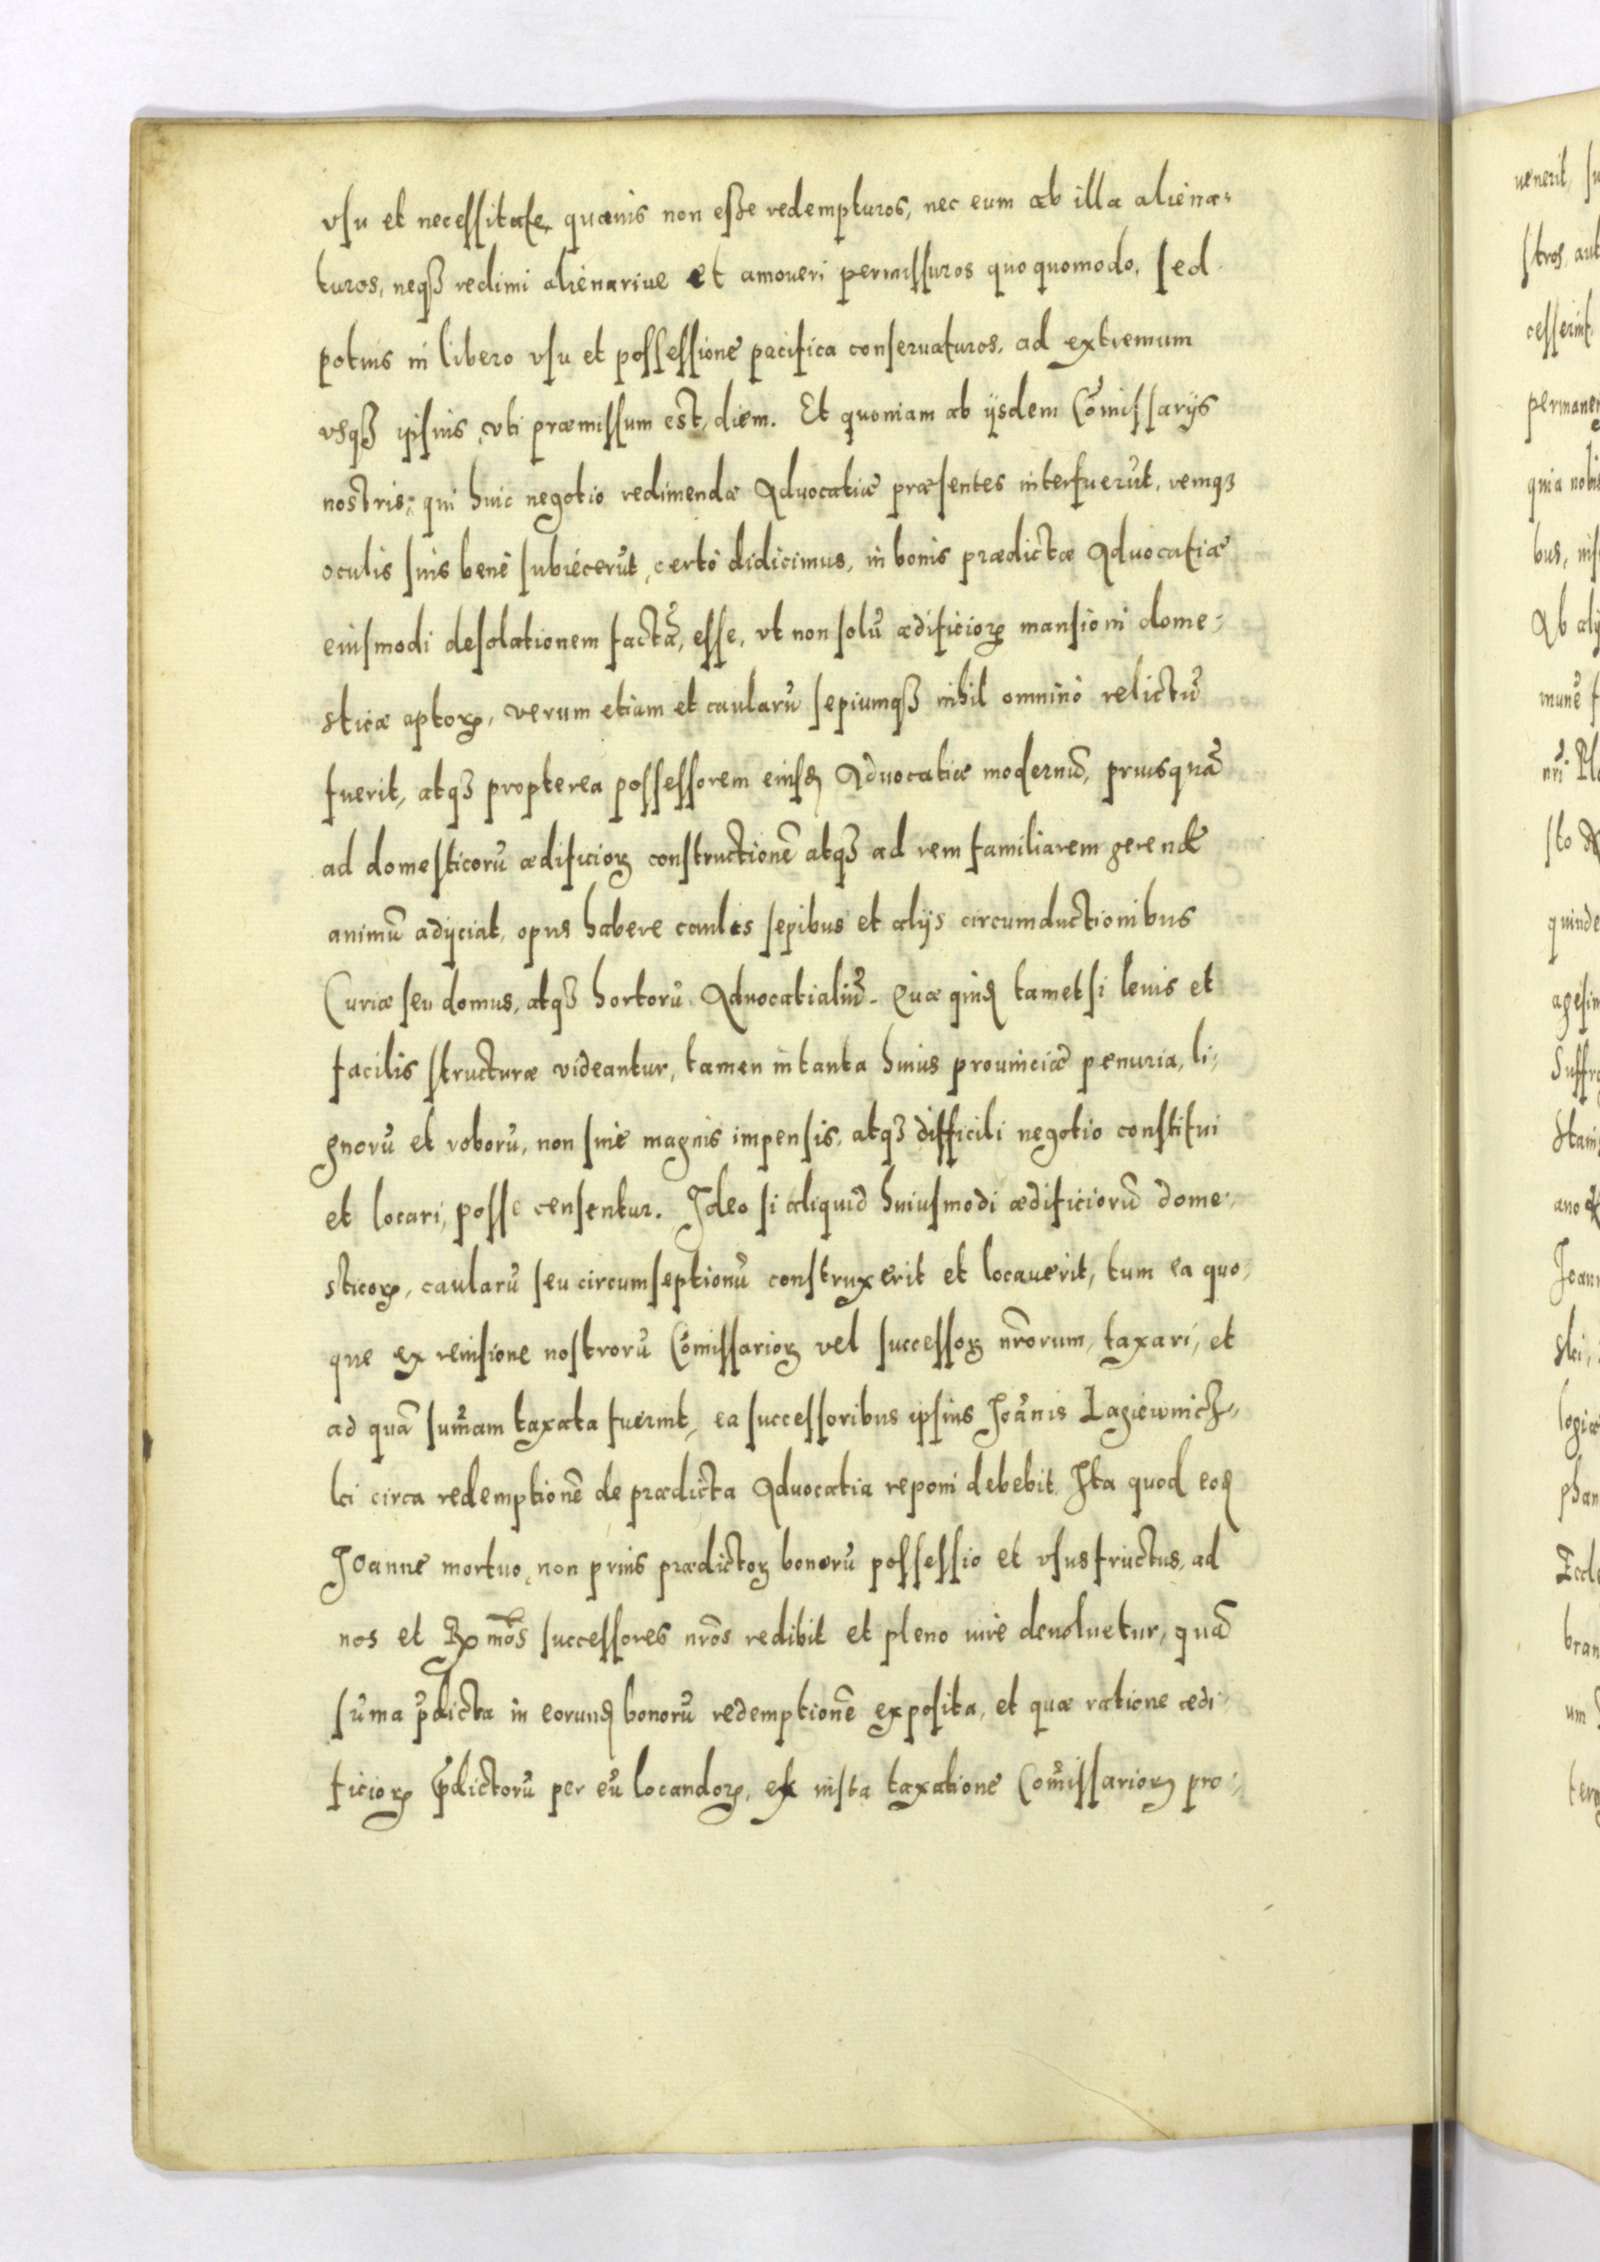 vsu et necessitate quauis non eße redempturos, nec eum ab illa aliena-
turos, neqȝ redimi alienariue et amoueri permissuros quoquomodo, sed
potius in libero vsu et possessione pacifica conseruaturos, ad extremum
vsqȝ ipsius, vti præmissum est, diem. Et quoniam ab ijsdem Cōmissarijs
nostris, qui huic negotio redimendæ Aduocatiæ præsentes interfuerūt, remqȝ
oculis suis bene subiecerūt, certo didicimus, in bonis prædictæ Aduocatiæ
eiusmodi desolationem factā, esse, vt non solū ædificioꝝ mansioni dome-
sticæ aptoꝝ, verum etiam et caularū sepiumqȝ nihil omnino relictū
fuerit, atqȝ propterea possessorem eiusꝺ Aduocatiæ modernū, priusquā
ad domesticorū ædificioꝝ constructionē atqȝ ad rem familiarem gerendā
animū adijciat, opus habere caulis sepibus et alijs circumductionibus
Curiæ seu domus, atqȝ hortorū Aduocatialiū. Quæ quiꝺ tametsi leuis et
facilis structuræ videantur, tamen in tanta huius prouinciæ penuria, li-
gnorū et roborū, non sine magnis impensis, atqȝ difficili negotio constitui
et locari, posse censentur. Ideo si aliquid huiusmodi ædificiorū dome-
sticoꝝ, caularū seu circumseptionū construxerit et locauerit, tum ea quo-
que ex reuisione nostrorū Cōmissarioꝝ vel successoꝝ nrōrum, taxari, et
ad quā sum̄am taxata fuerint, ea successoribus ipsius Joānis Łagiewnicz-
ki circa redemptionē de prædicta Aduocatia reponi debebit. Ita quod eoꝺ
Joanne mortuo, non prius prædictoꝝ bonorū possessio et vsusfructus, ad
nos et Rx̄mos successores nr̄os redibit et pleno iure deuoluetur, quā
sūma p̄dicta in eorunꝺ bonorū redemptionē exposita, et quæ ratione ædi-
ficioꝝ p̄dictorū per eū locandoꝝ, ex iusta taxatione Com̄issarioꝝ pro-